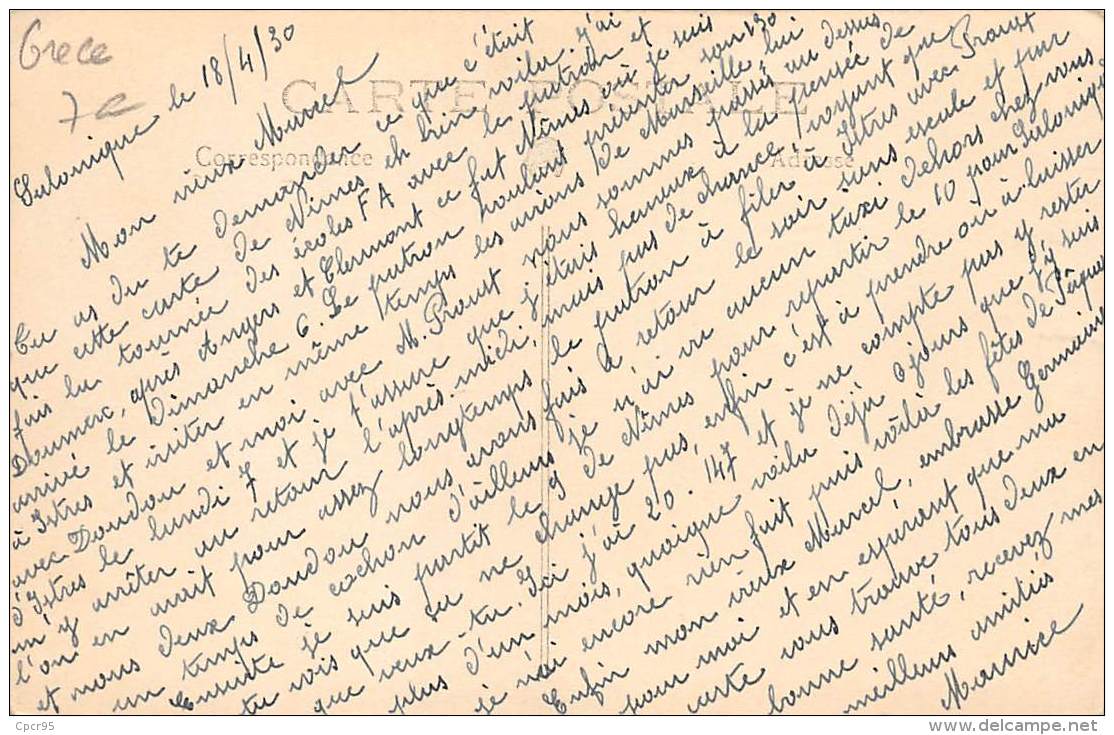 Grece
7€
CARTE POSTALE
Correspondance
Adresse
Salonique le 18/4/30
Mon vieux Marcel
Tu as du te demander ce que c'était
que cette carte de Nîmes eh bien voilu, j'ai
fais la tournée des écoles FA avec le patron et
Doumerc, après Angers et Clermont ce fut Nîmes où je suis
arrivé le Dimanche 6. Le patron voulant présenter son 130
à Istres et visiter en même temps les avions de Marseille lui
avec Doudou et moi avec M. Proust nous sommes passés au dessus
d'Istres le lundi 7 et je t'assure que j'étais heureux à la pensée de
m'y arrêter au retour l'après-midi, mais pas de chance! voyant que
l'on en avait pour assez longtemps le patron à filer à Istres avec Proust
et nous deux Doudou nous avons fais le retour le soir sans escale et par
un temps de cochon d'ailleurs je n'ai vu aucun taxi dehors chez vous
Ensuite je suis partit le 9 de Nîmes pour repartir le 10 pour Salonique
tu vois que sa ne change pas, enfin c'est à prendre ou à laisser
que veux-tu. Ici j'ai 20.147 et je ne compte pas y rester
plus d'un mois, quoique voilu déjà 8 jours que j'y suis
je n'ai encore rien fait puis voilu les fêtes de Pâques
Enfin mon vieux Marcel, embrasse Germaine
pour moi et en espérant que ma
carte vous trouve tous deux en
bonne santé, recevez mes
meilleurs amitiés
Maurice
Cpcr95
delcampe.net